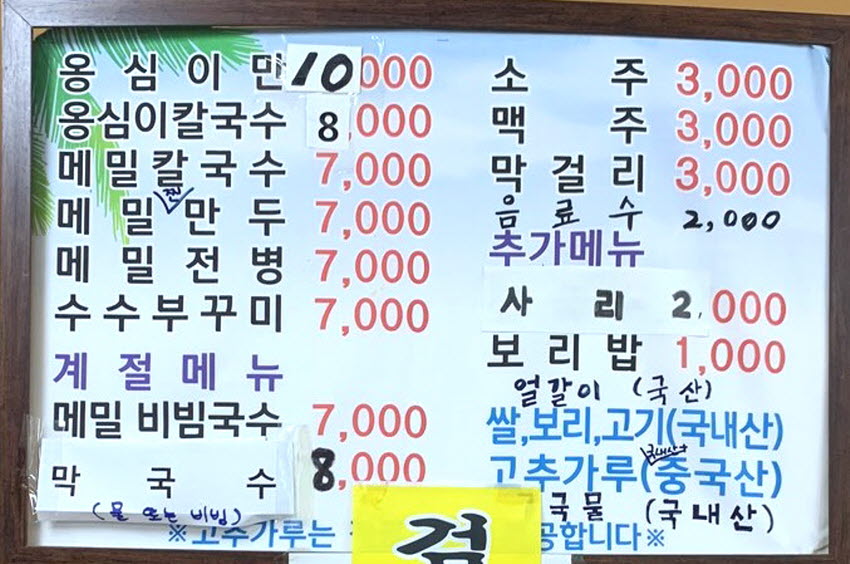 옹심이만 10,000
옹심이칼국수 8,000
메밀칼국수 7,000
찐
메밀만두 7,000
메밀전병 7,000
수수부꾸미 7,000
계절메뉴
메밀 비빔국수 7,000
막국수 8,000
(물 또는 비빔)
소주 3,000
맥주 3,000
막걸리 3,000
음료수 2,000
추가메뉴
사리 2,000
보리밥 1,000
얼갈이 (국산)
쌀,보리,고기(국내산)
국내산+
고추가루(중국산)
국물 (국내산)
※고추가루는 공합니다※
검